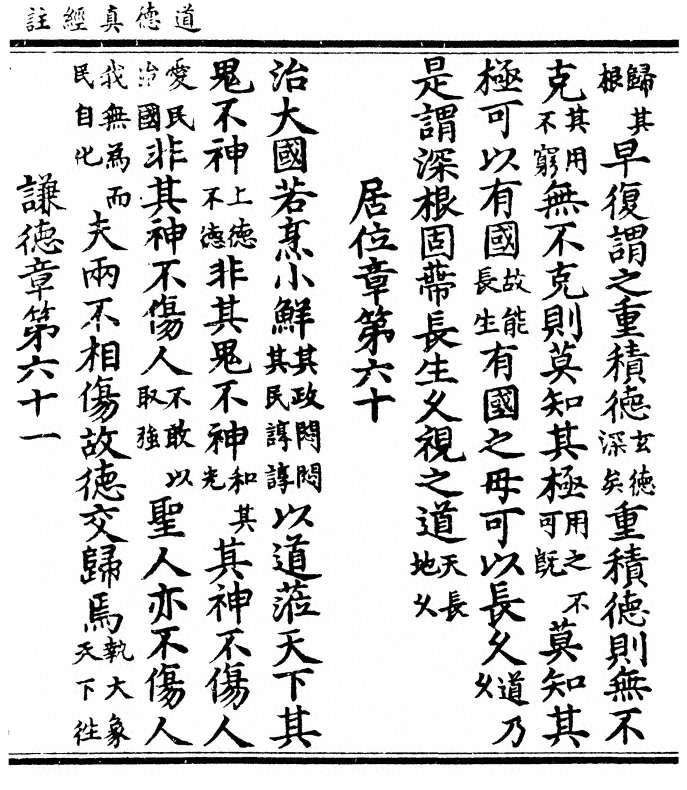 道德真經註
歸其根早復謂之重積德玄德深矣重積德則無不
克其用不窮無不克則莫知其極用之不可旣莫知其
極可以有國故能長生有國之母可以長久道乃久
是謂深根固蔕長生久視之道天長地久
居位章第六十
治大國若烹小鮮其政悶悶其民諄諄以道蒞天下其
鬼不神上德不德非其鬼不神和其光其神不傷人
愛民治國非其神不傷人不敢以取強聖人亦不傷人
我無為而民自化夫兩不相傷故德交歸焉執大象天下往
謙德章第六十一